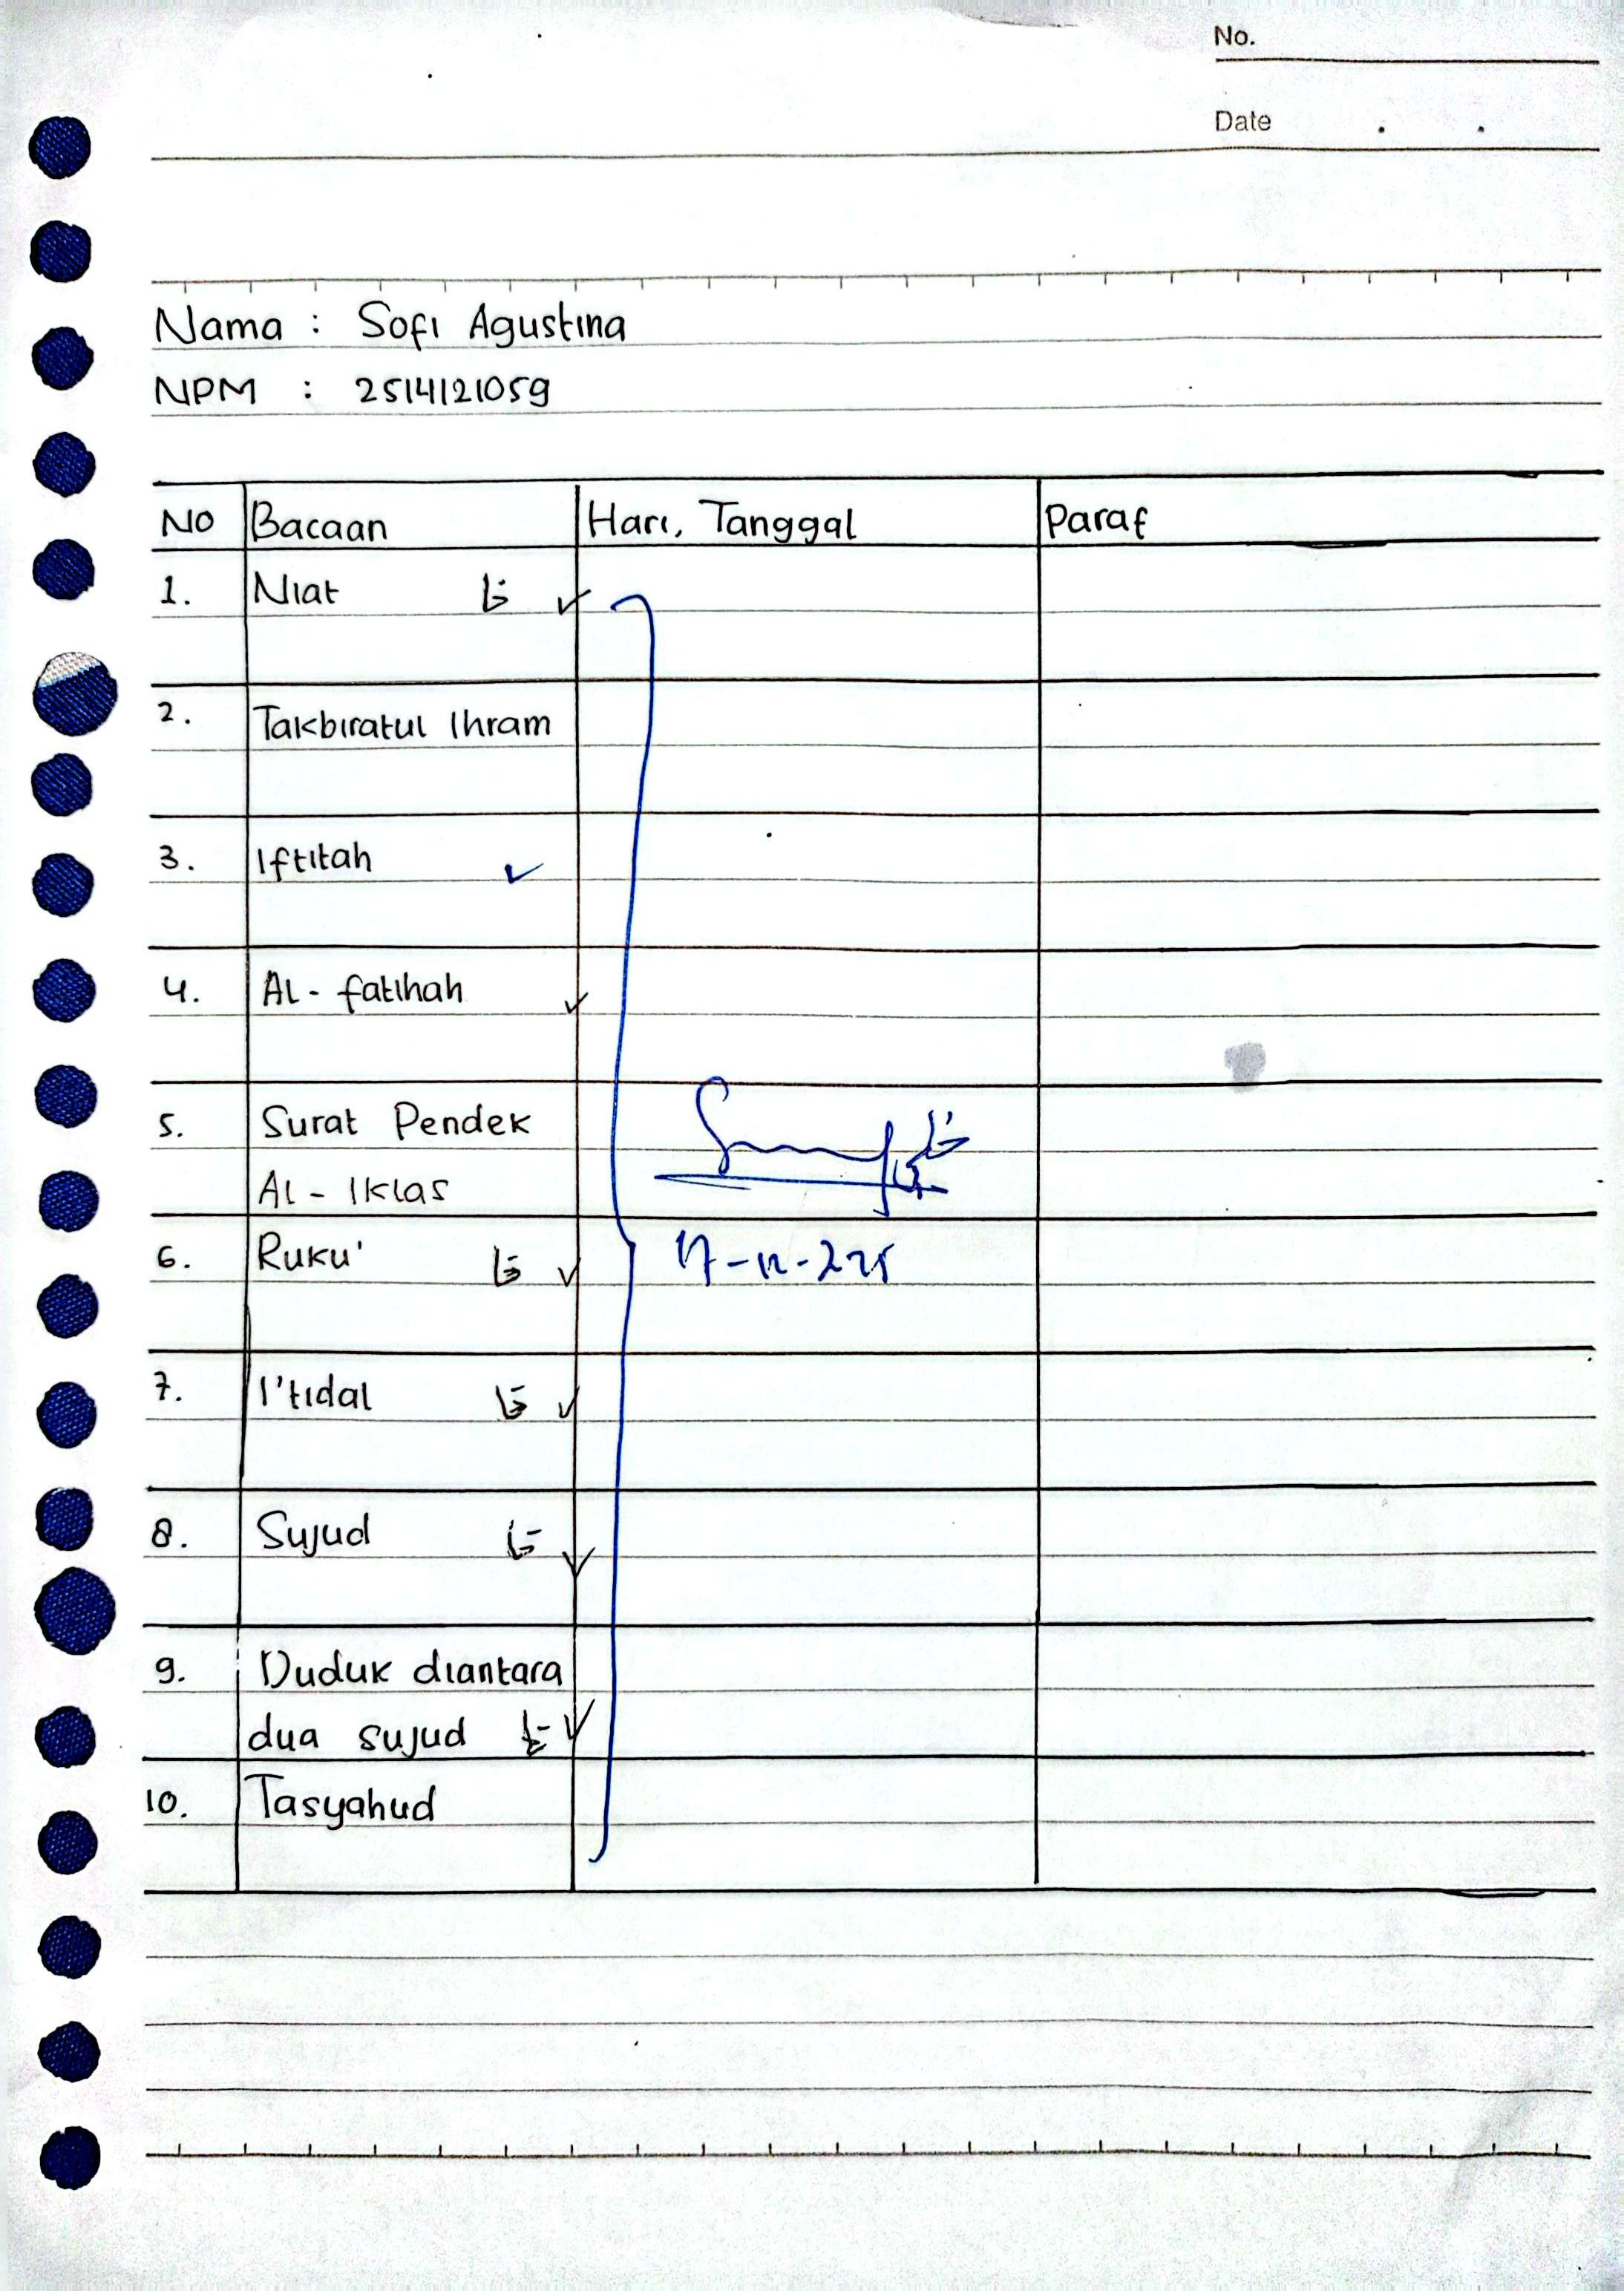 No.
Date
Nama : Sofi Agustina
NPM : 2514121059
NO Bacaan Hari, Tanggal Paraf
1. Niat ✓
2. Takbiratul Ihram
3. Iftitah ✓
4. Al - fatihah ✓
5. Surat Pendek
Al - Iklas
6. Ruku' ✓
7. I'tidal ✓
8. Sujud ✓
9. Duduk diantara
dua sujud ✓
10. Tasyahud